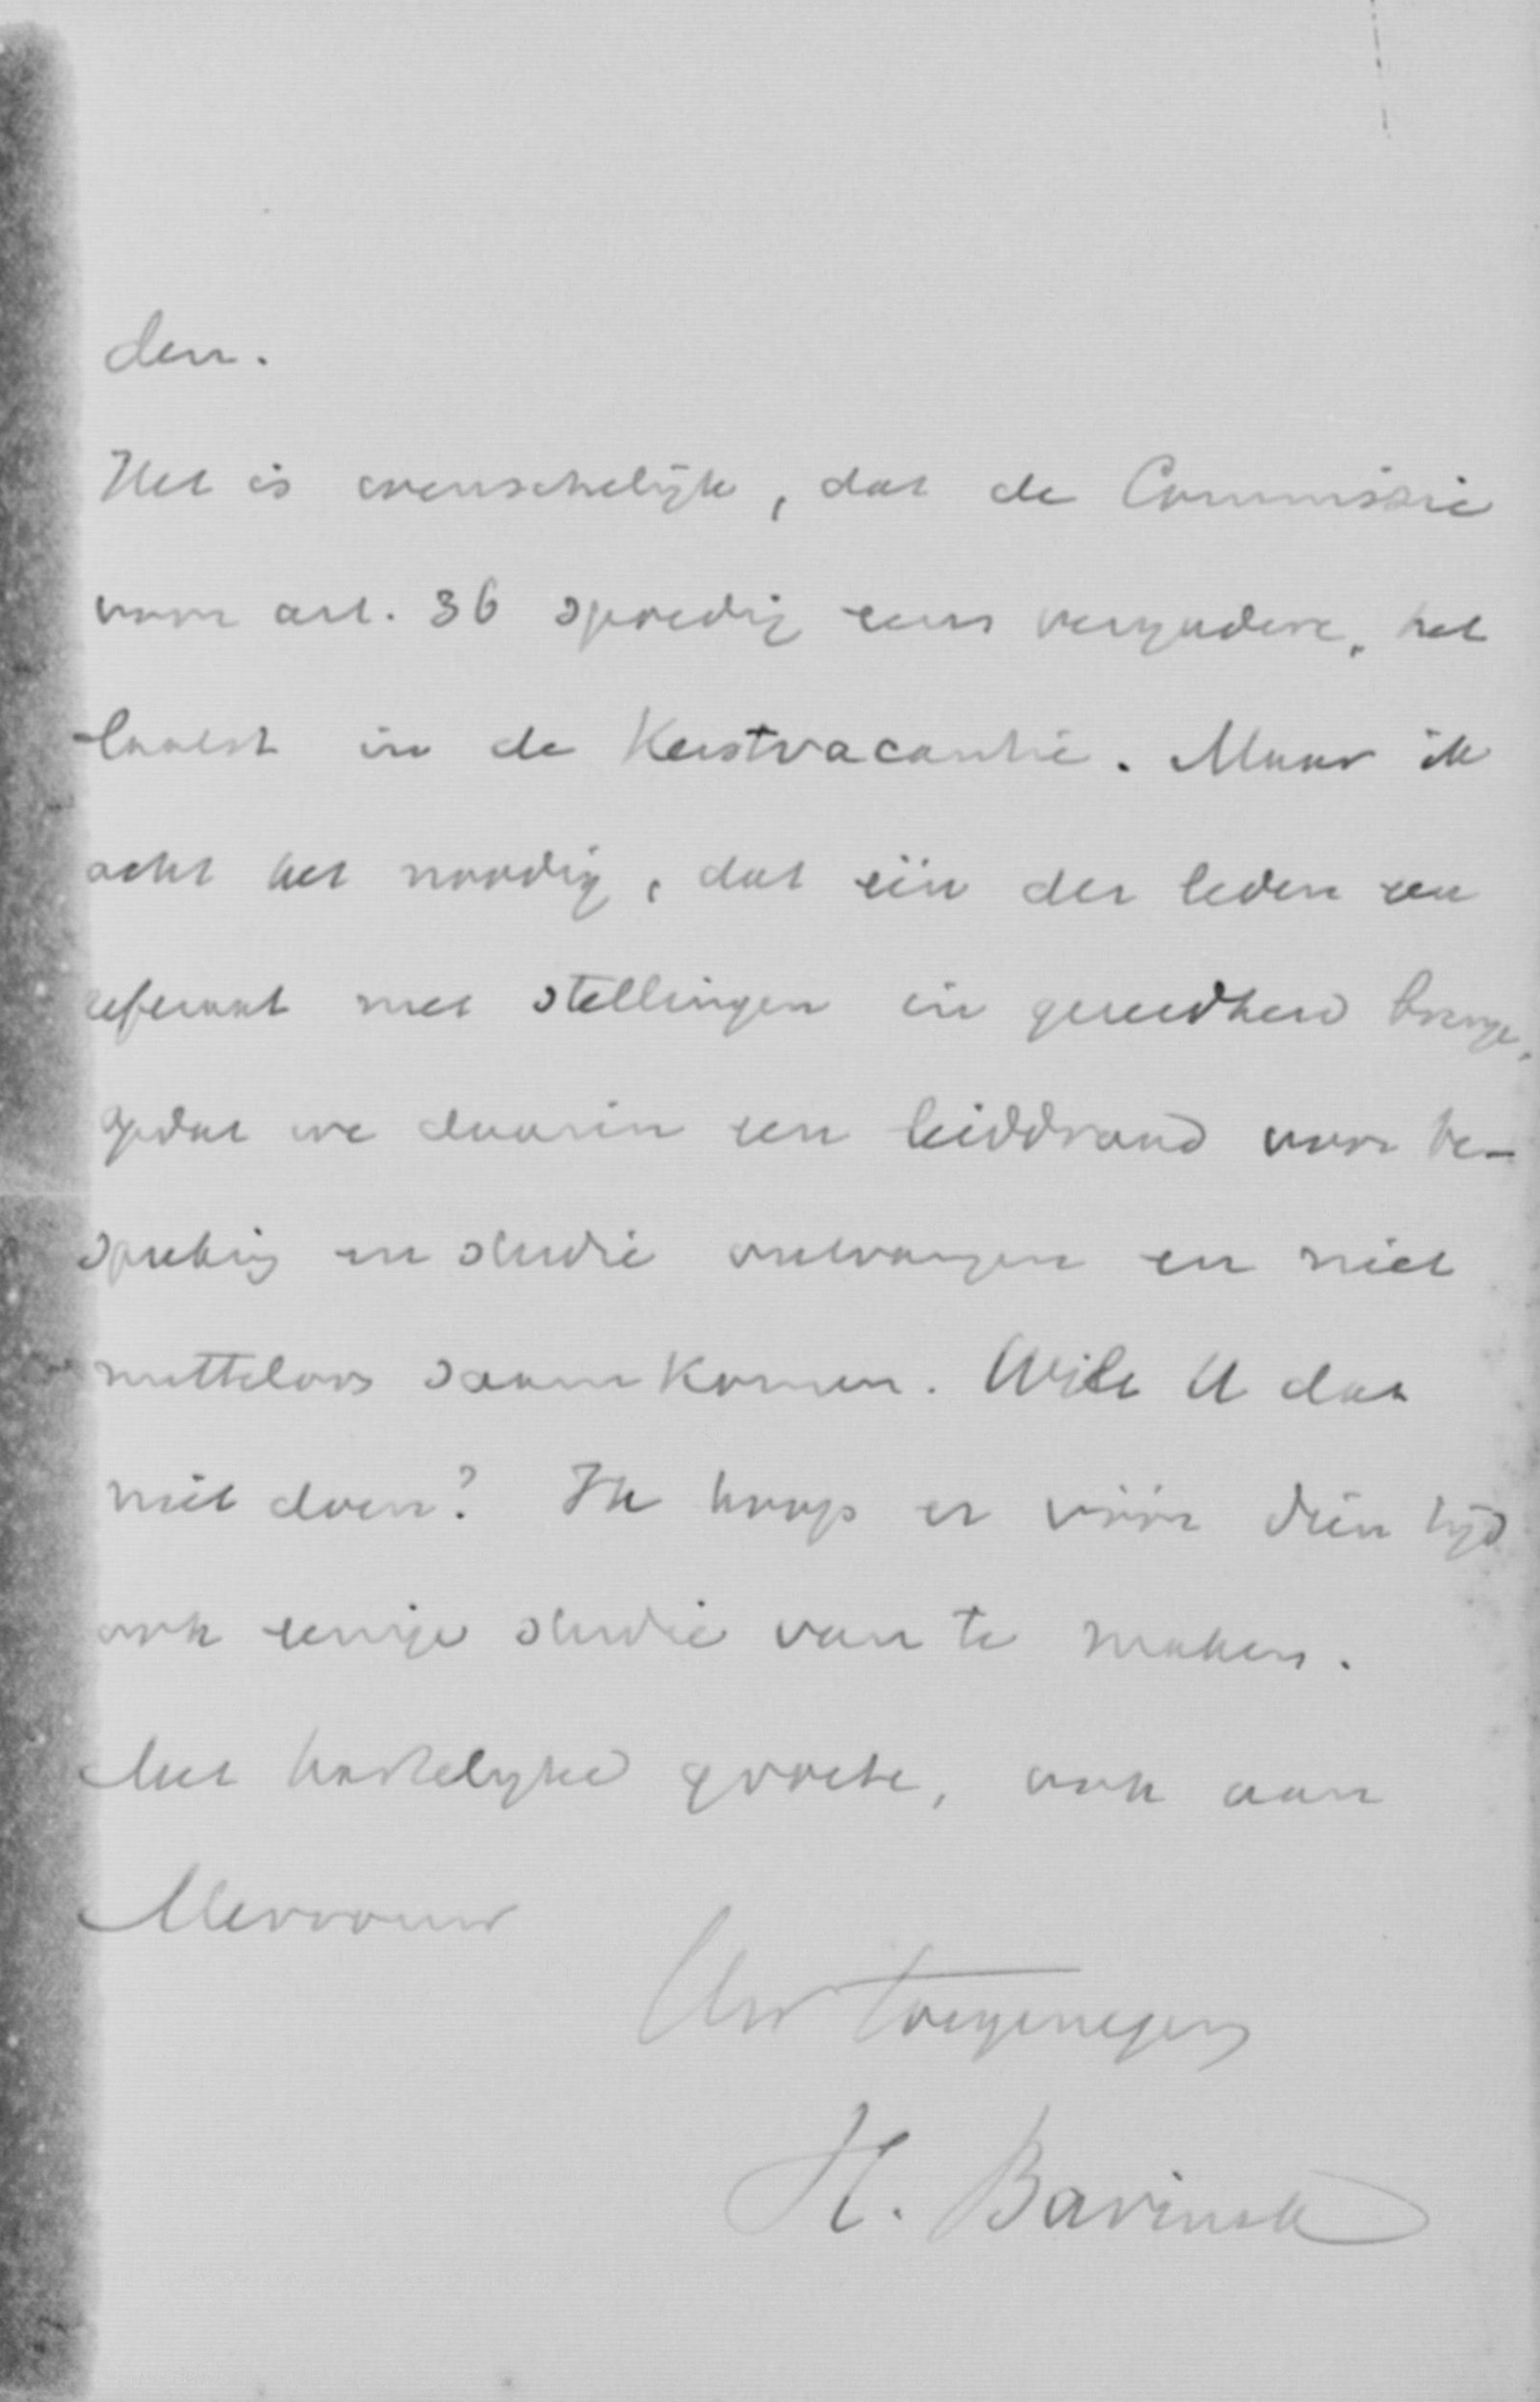 den.
Het is wenschelijk, dat de Commissie
voor art. 36 spoedig eens vergadere, het
laatst in de Kerstvacantie. Maar ik
acht het noodig, dat één der leden een
referaat met stellingen in gereedheid brenge,
opdat we daarin een leiddraad voor be-
spreking en studie ontvangen en niet
nutteloos saamkomen. Wilt U dat
niet doen? Ik hoop er vóór dien tijd
ook eenige studie van te maken.
Met hartelijke groete, ook aan
Mevrouw
Uw toegenegen
H. Bavinck